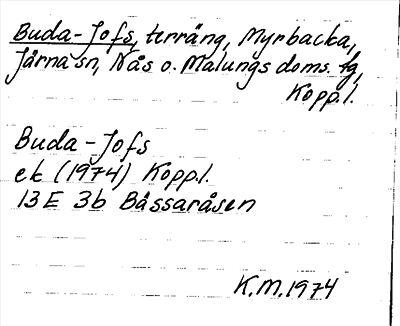 Buda-Jofs, terräng, Myrbacka,
Järna sn, Nås o. Malungs doms. fg,
Kopp.l.
Buda-Jofs
ek (1974) Kopp.l.
13E 3b Båssaråsen
K.M.1974